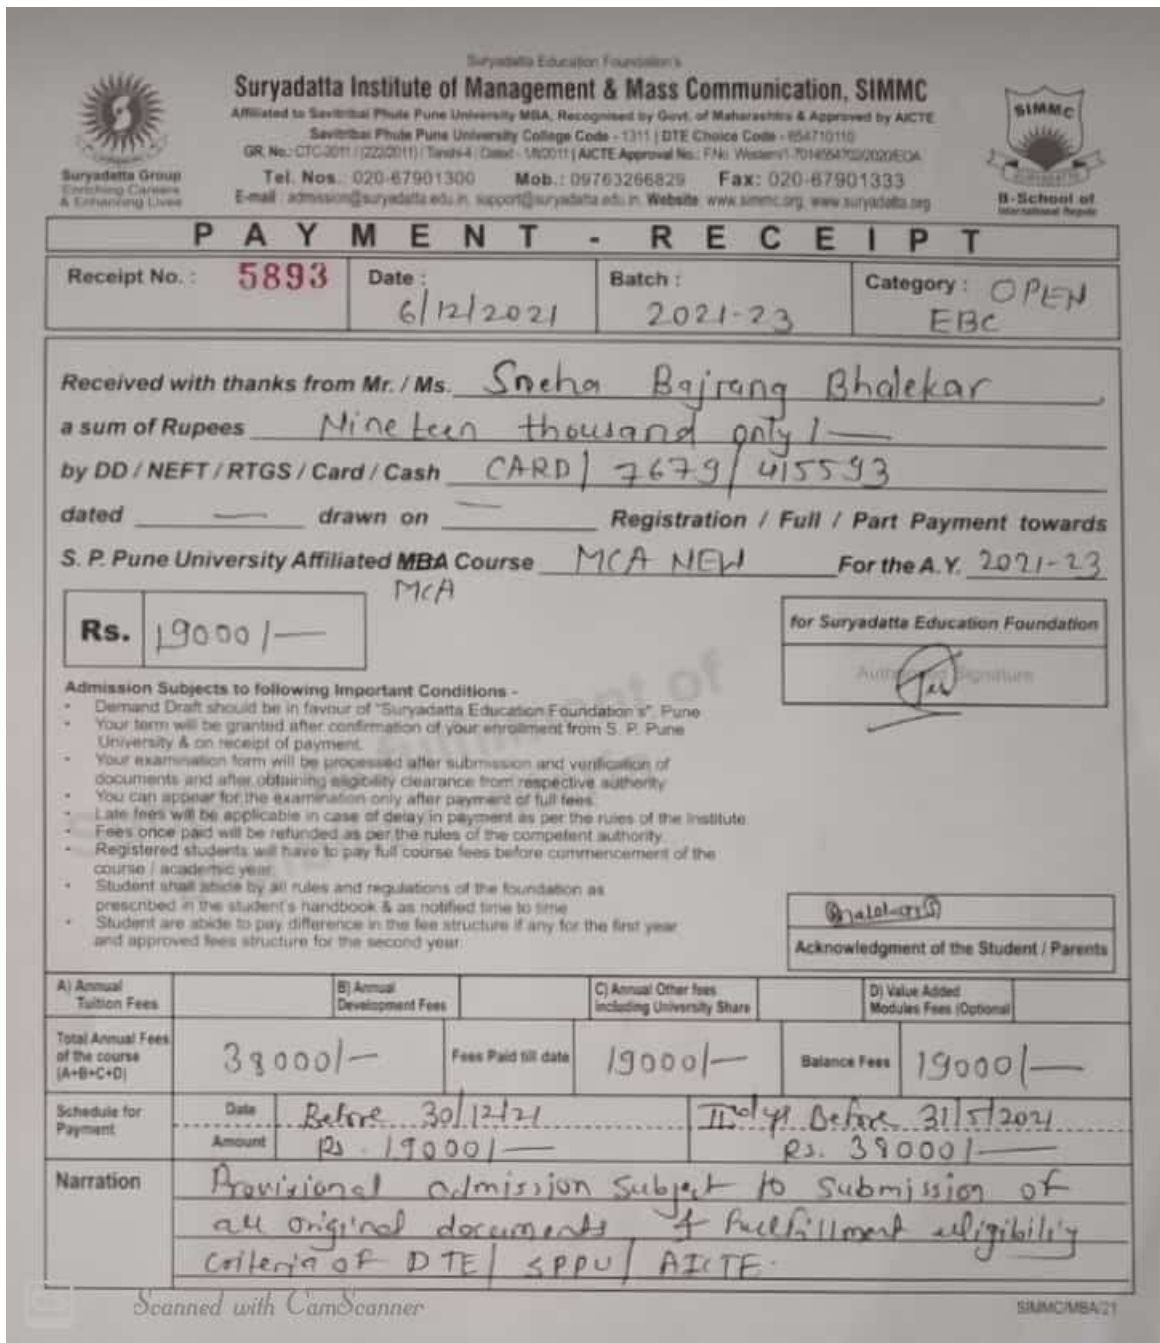 Suryadatta Education Foundation's
Suryadatta Institute of Management & Mass Communication, SIMMC
Affiliated to Savitribai Phule Pune University MBA, Recognised by Govt. of Maharashtra & Approved by AICTE
Savitribai Phule Pune University College Code - 1311 | DTE Choice Code - 654710110
Suryadatta Group
Enriching Careers
& Enhancing Lives
Tel. Nos.: 020-67901300 Mob.: 09763266829 Fax: 020-67901333
E-mail : admission@suryadatta.edu.in, support@suryadatta.edu.in, Website: www.simmc.org, www.suryadatta.org
SIMMC
SURYADATTA
B-School of
International Repute
PAYMENT - RECEIPT
Receipt No. : 5893
Date : 6/12/2021
Batch : 2021-23
Category : OPEN
EBC
Received with thanks from Mr. / Ms. Sneha Bajrang Bhalekar
a sum of Rupees Nineteen thousand only/-
by DD / NEFT / RTGS / Card / Cash CARD/ 7679/415593
dated — drawn on — Registration / Full / Part Payment towards
S. P. Pune University Affiliated MBA Course MCA NEW For the A.Y. 2021-23
MCA
Rs. 19000/-
for Suryadatta Education Foundation
Authorised Signature
Admission Subjects to following Important Conditions -
• Demand Draft should be in favour of "Suryadatta Education Foundation's", Pune
• Your term will be granted after confirmation of your enrollment from S. P. Pune
University & on receipt of payment.
• Your examination form will be processed after submission and verification of
documents and after obtaining eligibility clearance from respective authority
• You can appear for the examination only after payment of full fees.
• Late fees will be applicable in case of delay in payment as per the rules of the Institute.
• Fees once paid will be refunded as per the rules of the competent authority.
• Registered students will have to pay full course fees before commencement of the
course / academic year.
• Student shall abide by all rules and regulations of the foundation as
prescribed in the student's handbook & as notified time to time
• Student are abide to pay difference in the fee structure if any for the first year
and approved fees structure for the second year.
Acknowledgment of the Student / Parents
A) Annual
Tuition Fees
B) Annual
Development Fees
C) Annual Other fees
including University Share
D) Value Added
Modules Fees (Optional
Total Annual Fees
of the course
(A+B+C+D)
38000/-
Fees Paid till date
19000/-
Balance Fees
19000/-
Schedule for
Payment
Date Before 30/12/21 IInd yr Before 31/5/2021
Amount Rs. 19000/- Rs. 38000/-
Narration Provisional admission subject to submission of
all original documents & fullfillment eligibility
criteria of DTE/ SPPU/ AICTE.
Scanned with CamScanner
SIMMC/MBA/21